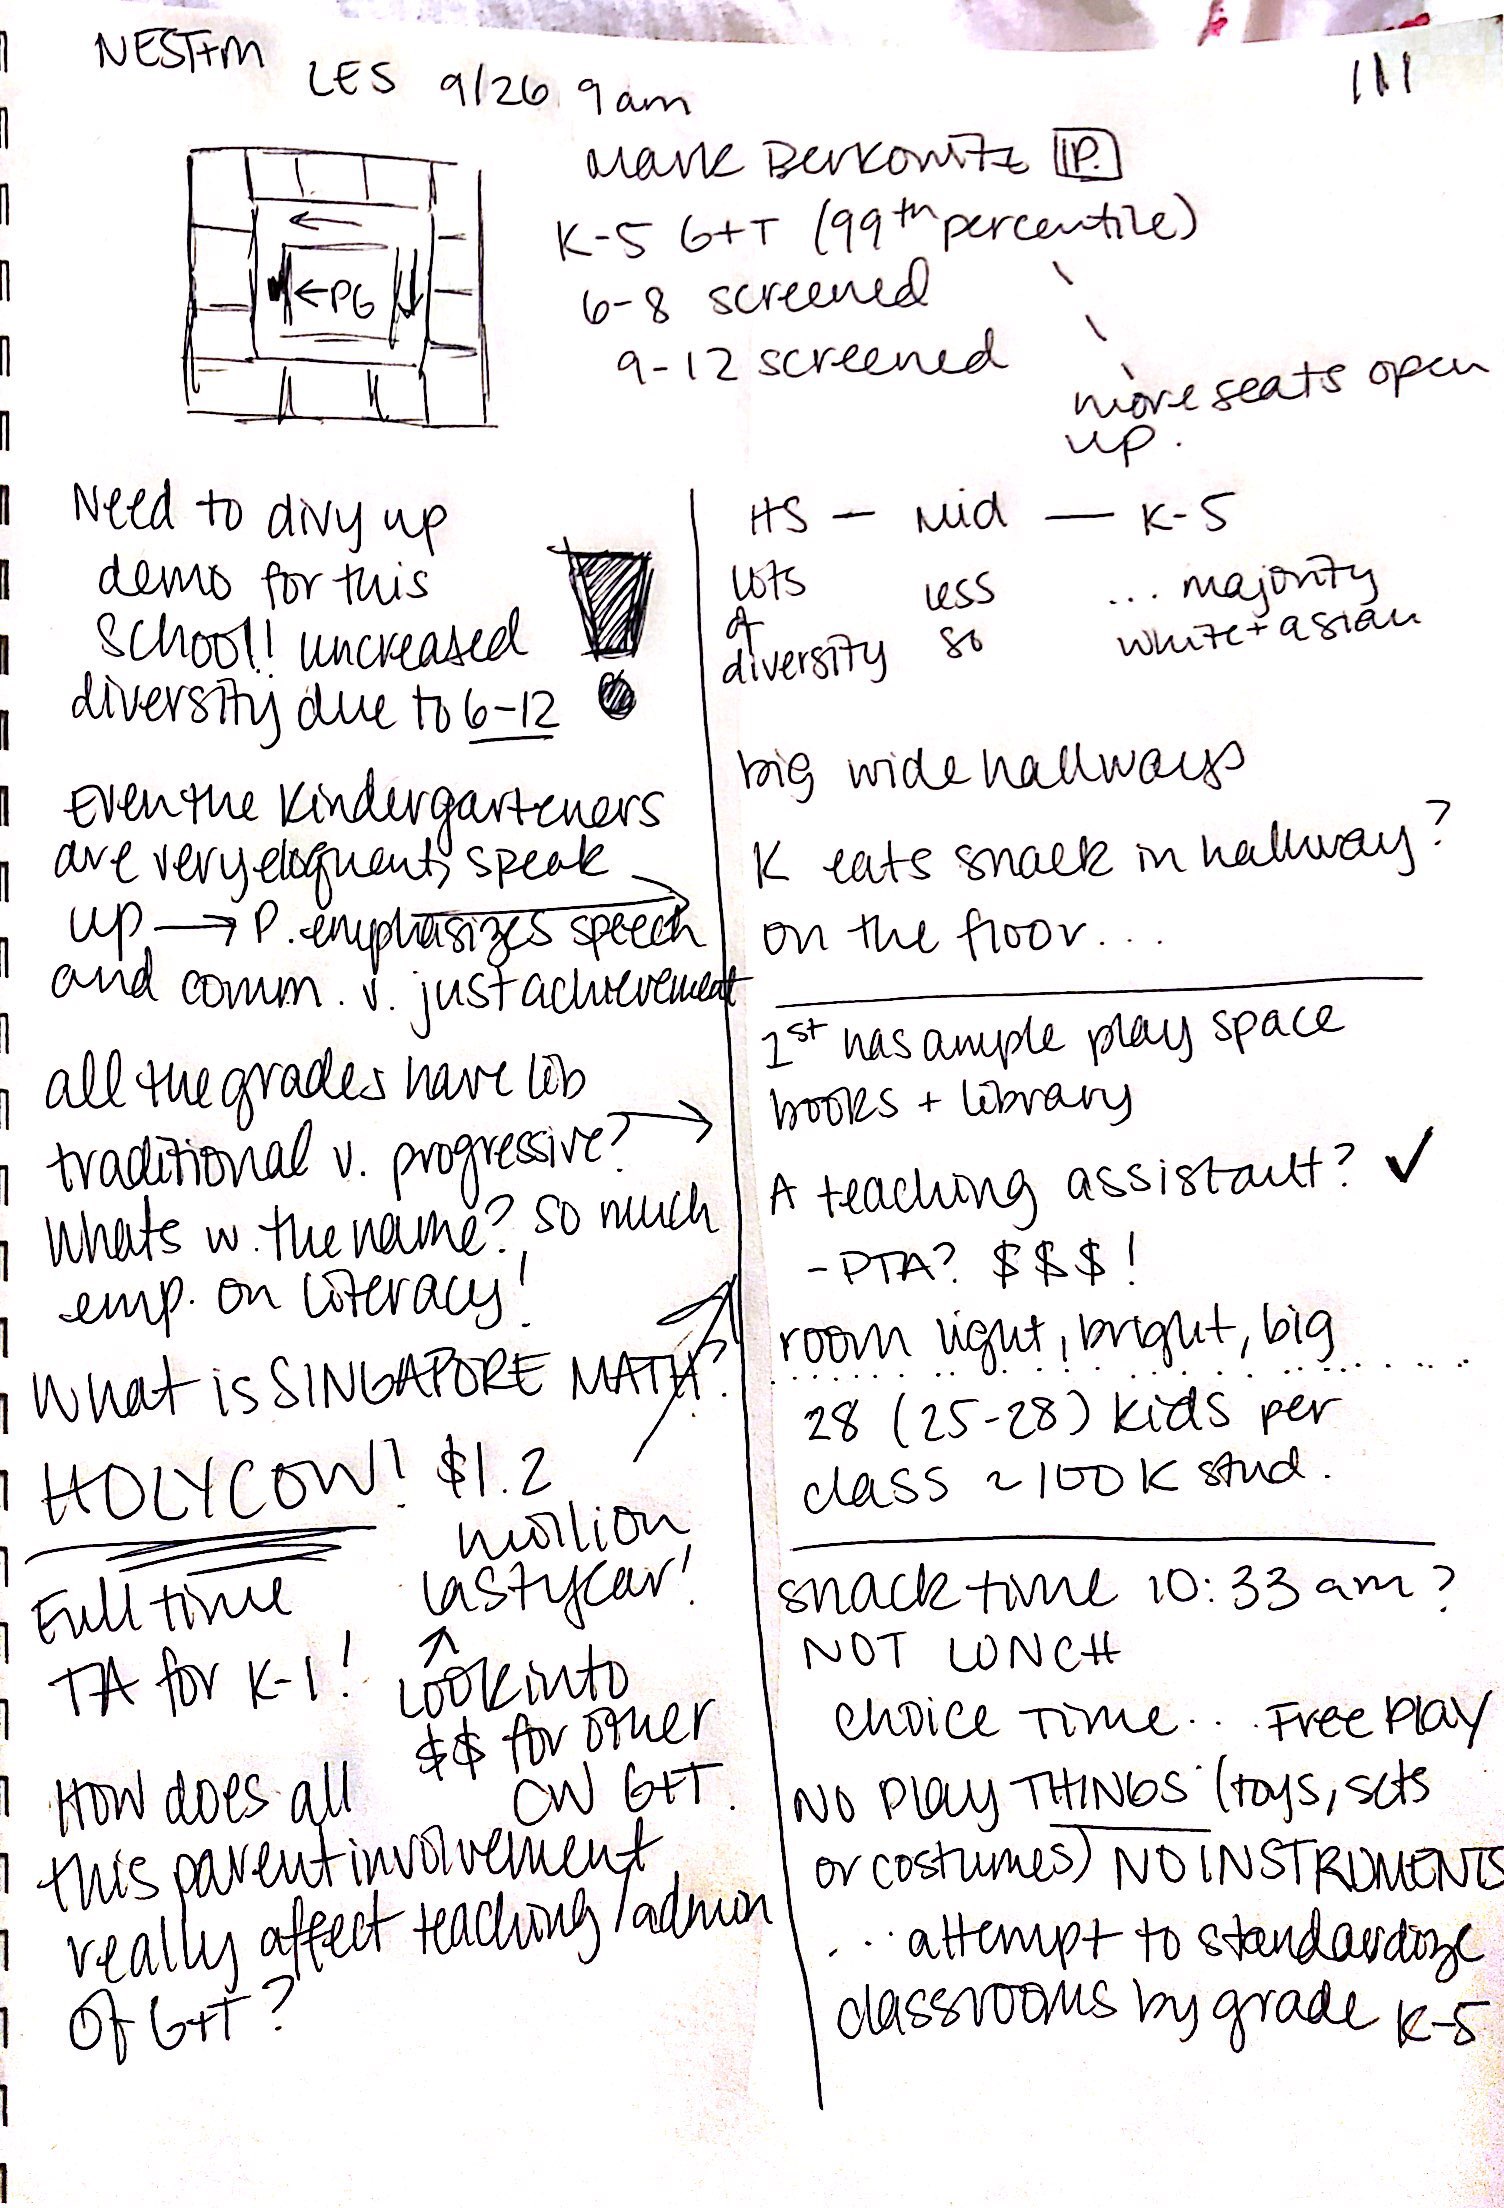 NEST+M
LES 9/26 9am
111
Mark Berkowitz P.
K-5 G+T (99th percentile)
6-8 screened
9-12 screened
more seats open
up.
←PG
Need to divy up
demo for this
school! increased
diversity due to 6-12
Even the kindergarteners
are very eloquent, speak
up → P. emphasizes speech
and comm. v. just achievement
all the grades have lib
traditional v. progressive?
Whats w. the name? so much
emp. on literacy!
What is SINGAPORE MATH?
HOLYCOW! $1.2
million
last year!
Full time
TA for K-1!
Look into
$$ for other
CW G+T.
How does all
this parent involvement
really affect teaching/admin
of G+T?
HS — Mid — K-5
lots less ... majority
of so white + asian
diversity
big wide hallways
K eats snack in hallway?
on the floor...
1st has ample play space
books + library
A teaching assistant? ✓
- PTA? $$$!
room light, bright, big
28 (25-28) kids per
class ~ 100 K stud.
snack time 10:33 am?
NOT LUNCH
choice time... Free play
NO Play THINGS (toys, sets
or costumes) NO INSTRUMENTS
... attempt to standardize
classrooms by grade K-5